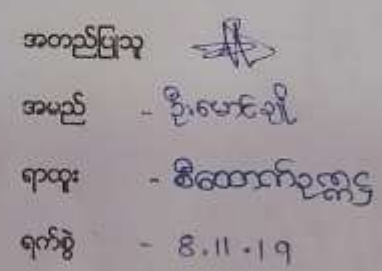 အတည်ပြုသူ
အမည် - ဦးမောင်ချို
ရာထူး - စီထောက်ဥက္ကဋ္ဌ
ရက်စွဲ - 8.11.19